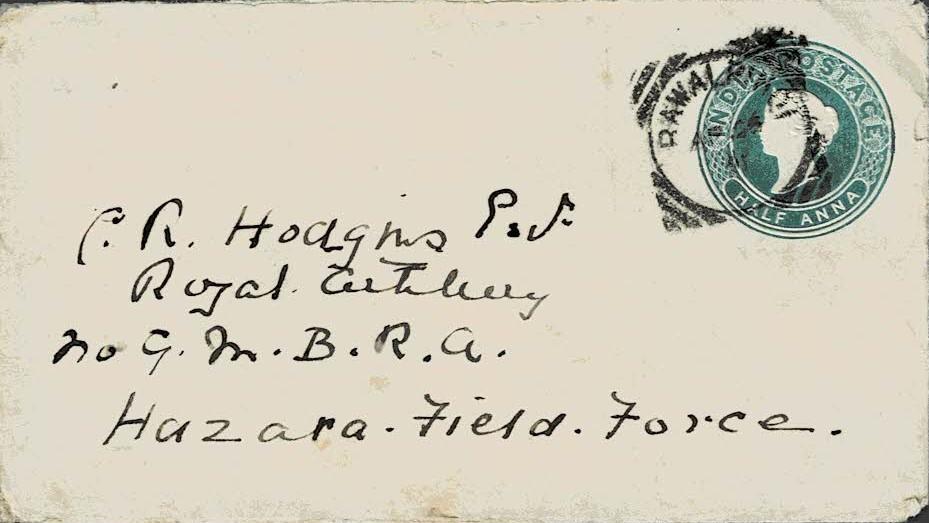 INDIA POSTAGE
HALF ANNA
RAWALPINDI
C. R. Hodgins
Royal Artillery
No 9. M. B. R. A.
Hazara. Field. Force.